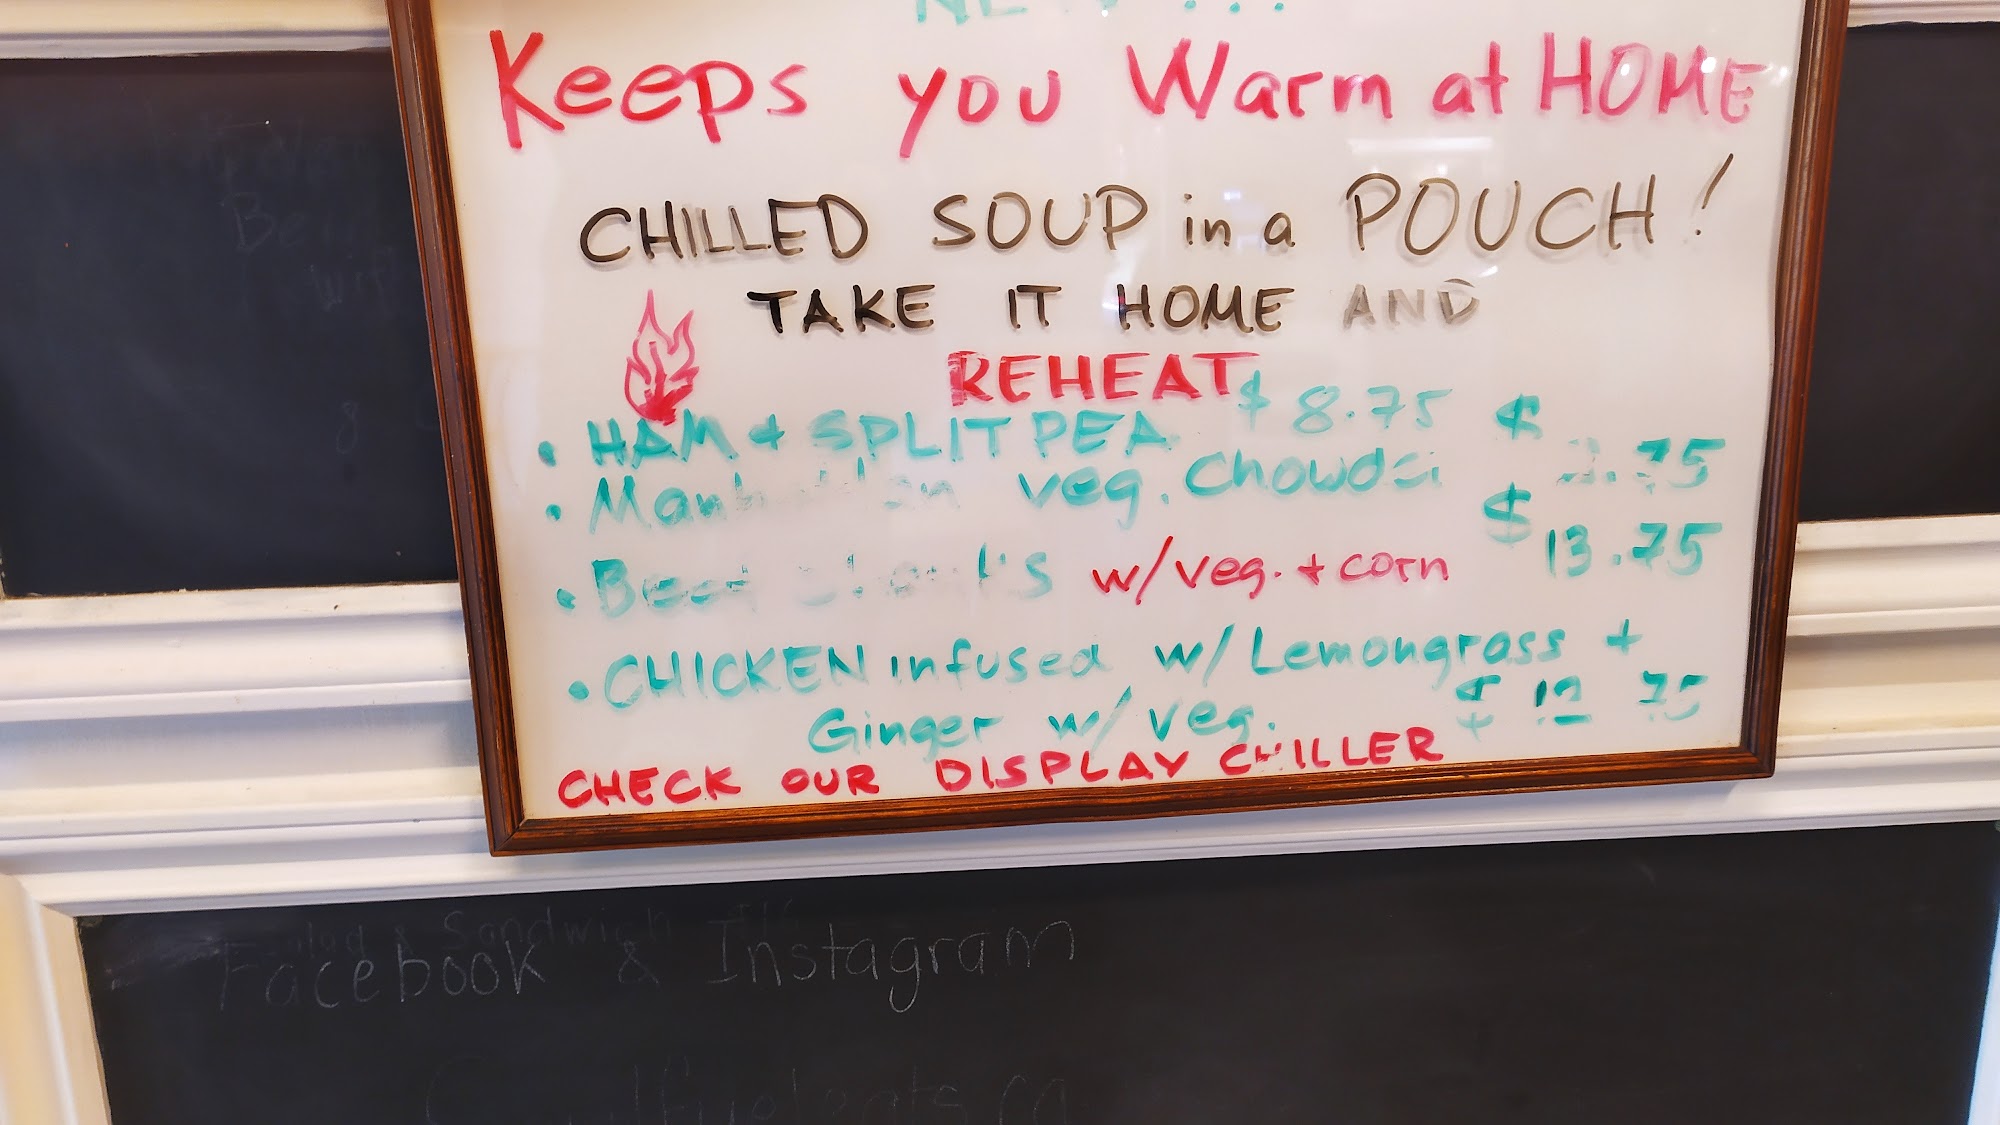 NEW!!!
Keeps you Warm at HOME
CHILLED SOUP in a POUCH!
TAKE IT HOME AND
REHEAT
• HAM + SPLIT PEA $8.75
• Manhattan veg. Chowder $ .75
• Beef w/veg. + corn $13.75
• CHICKEN infused w/ Lemongrass +
Ginger w/ veg. $12.75
CHECK OUR DISPLAY CHILLER
Salad & Sandwich
Facebook & Instagram